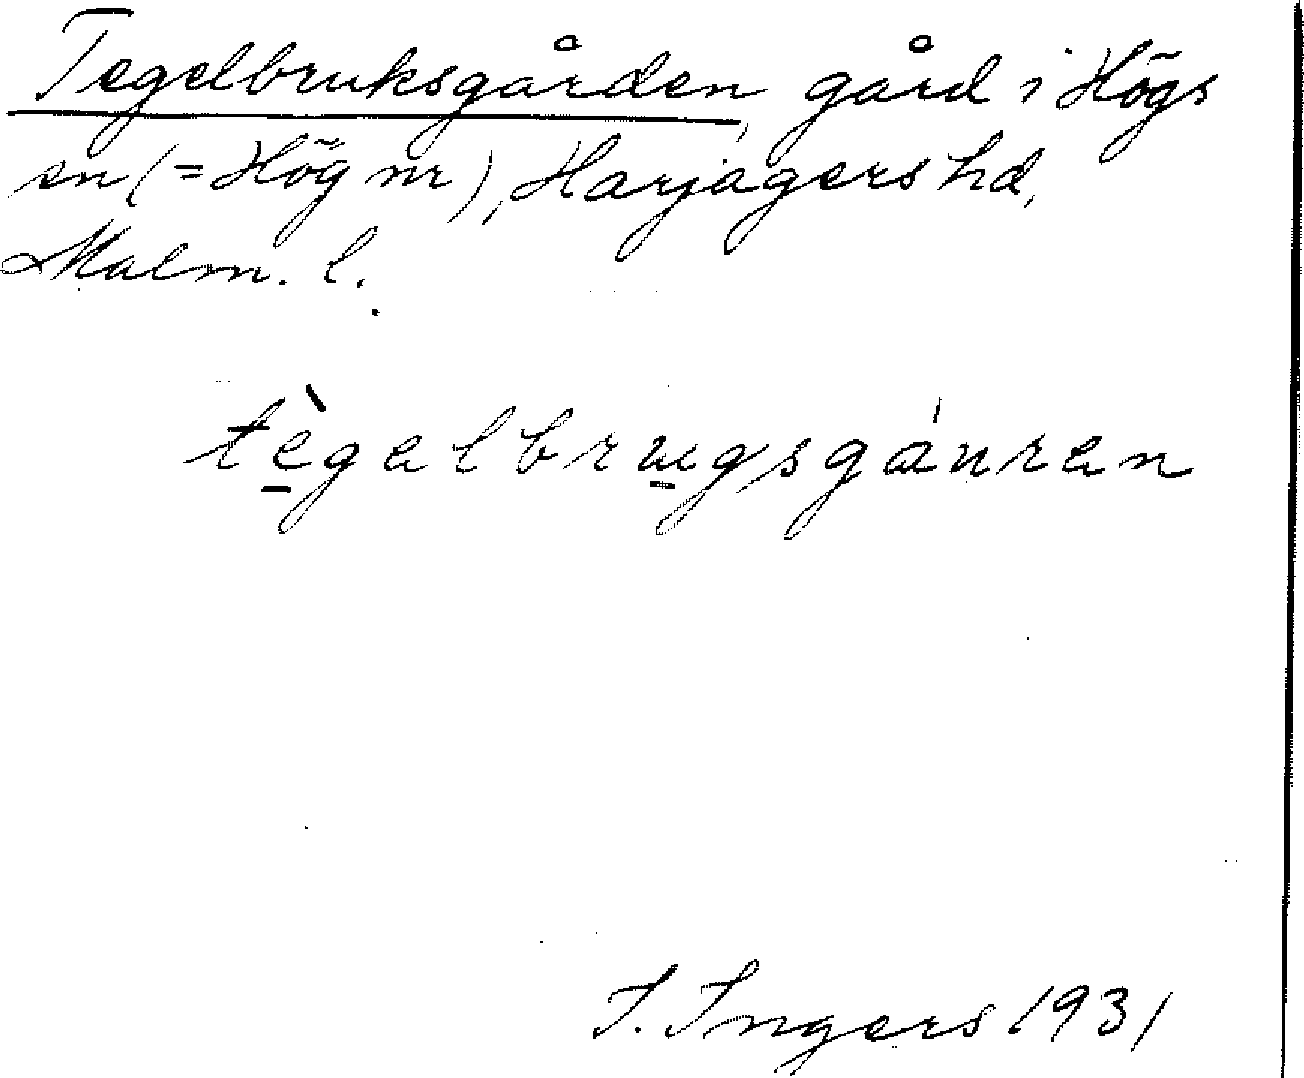 Tegelbruksgården, gård i Högs
sn (= Hög nr), Harjagers hd,
Malm. l.
tègelbrugsgánren
I. Ingers 1931